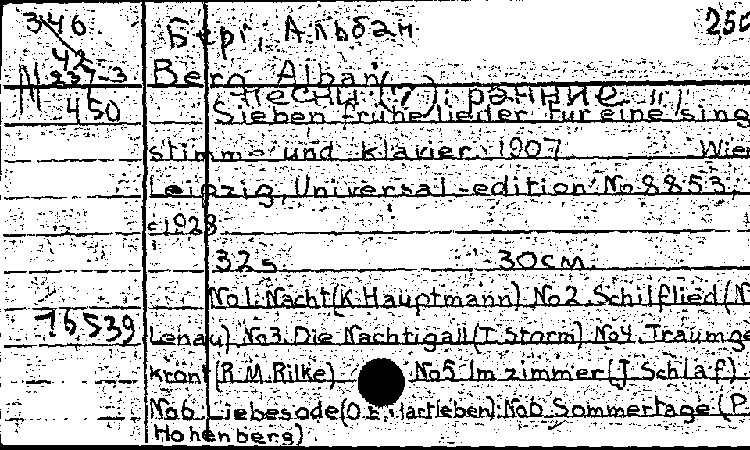 346 Берг, Альбан 256
42
N 237-3 Berg, Alban
Песни (7), ранние
450 Sieben frühe lieder für eine sing
stimme und klavier. 1907 Wien
Leipzig, Universal-edition No 8853.
c1928
32s 30cm.
No1. Nacht (K. Hauptmann) No2. Schilflied (N
76539 Lenau) No3. Die Nachtigall (T. Storm) No4. Traumge
krönt (R. M. Rilke) No5 Im zimmer (J. Schlaf)
No6. Liebesode (O. E. Hartleben). No6 Sommertage (P.
Hohenberg)